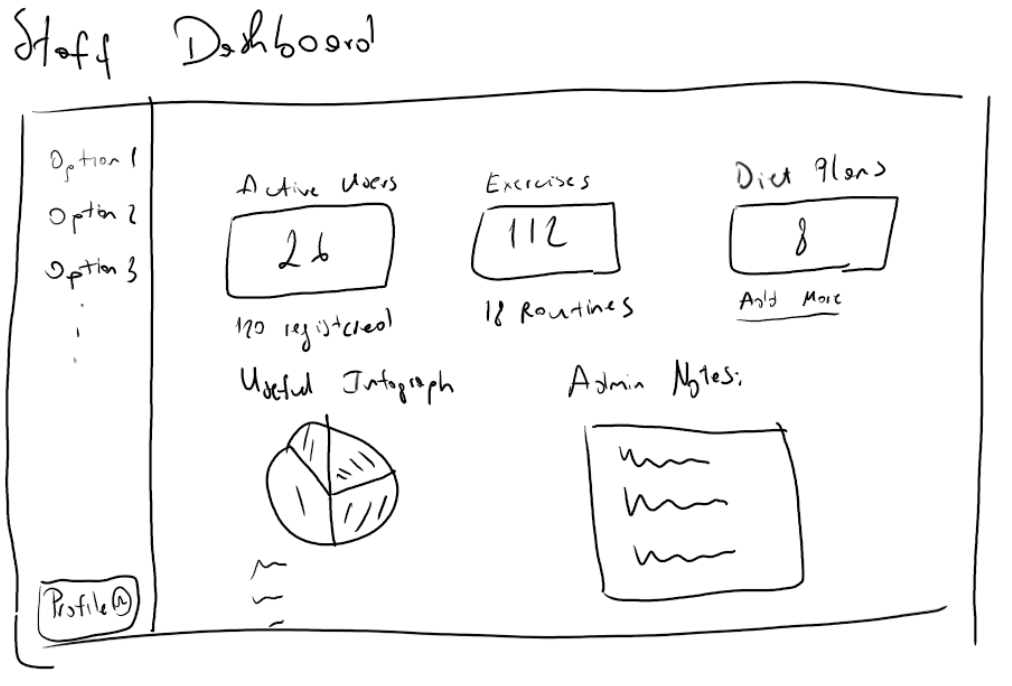 Staff Dashboard
Option 1
Option 2
Option 3
Profile
Active Users
26
120 registered
Exercises
112
18 Routines
Diet Plans
8
Add More
Useful Infograph
Admin Notes: